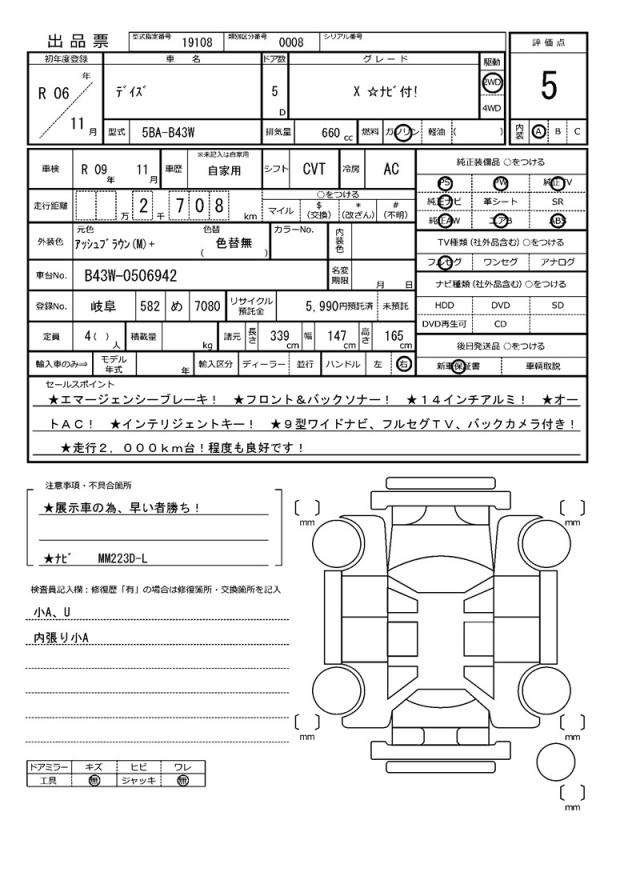 出品票 型式指定番号 19108 類別区分番号 0008 シリアル番号
評価点
5
内装 A B C
初年度登録 車名 ドア数 グレード 駆動
R 06 年 11 月
ﾃﾞｲｽﾞ 5 D X ☆ﾅﾋﾞ付! 2WD 4WD
型式 5BA-B43W 排気量 660 cc 燃料 ガソリン 軽油 ( )
車検 R 09 年 11 月 車歴 ※未記入は自家用 自家用 シフト CVT 冷房 AC
走行距離 万 2 千 7 0 8 km
○をつける
マイル $(交換) *(改ざん) #(不明)
外装色 元色 ｱｯｼｭﾌﾞﾗｳﾝ(M)+ 色替 ( 色替無 ) カラーNo. 内装色
車台No. B43W-0506942 名変期限 月 日
登録No. 岐阜 582 め 7080 リサイクル預託金 5,990円預託済 未預託
定員 4( ) 人 積載量 kg 諸元 長さ 339 cm 幅 147 cm 高さ 165 cm
輸入車のみ⇒ モデル年式 年 輸入区分 ディーラー 並行 ハンドル 左 右
純正装備品 ○をつける
PS PW 純正TV
純正ナビ 革シート SR
純正AW エアB ABS
TV種類(社外品含む)○をつける
フルセグ ワンセグ アナログ
ナビ種類(社外品含む)○をつける
HDD DVD SD
DVD再生可 CD
後日発送品 ○をつける
新車保証書 車輌取説
セールスポイント
★エマージェンシーブレーキ! ★フロント&バックソナー! ★14インチアルミ! ★オー
トAC! ★インテリジェントキー! ★9型ワイドナビ、フルセグTV、バックカメラ付き!
★走行2,000km台!程度も良好です!
注意事項・不具合箇所
★展示車の為、早い者勝ち!
★ﾅﾋﾞ MM223D-L
検査員記入欄:修復歴「有」の場合は修復箇所・交換箇所を記入
小A、U
内張り小A
ドアミラー キズ ヒビ ワレ
工具 無 ジャッキ 無
[ ] mm
[ ] mm
[ ] mm
[ ] mm
[ ] mm